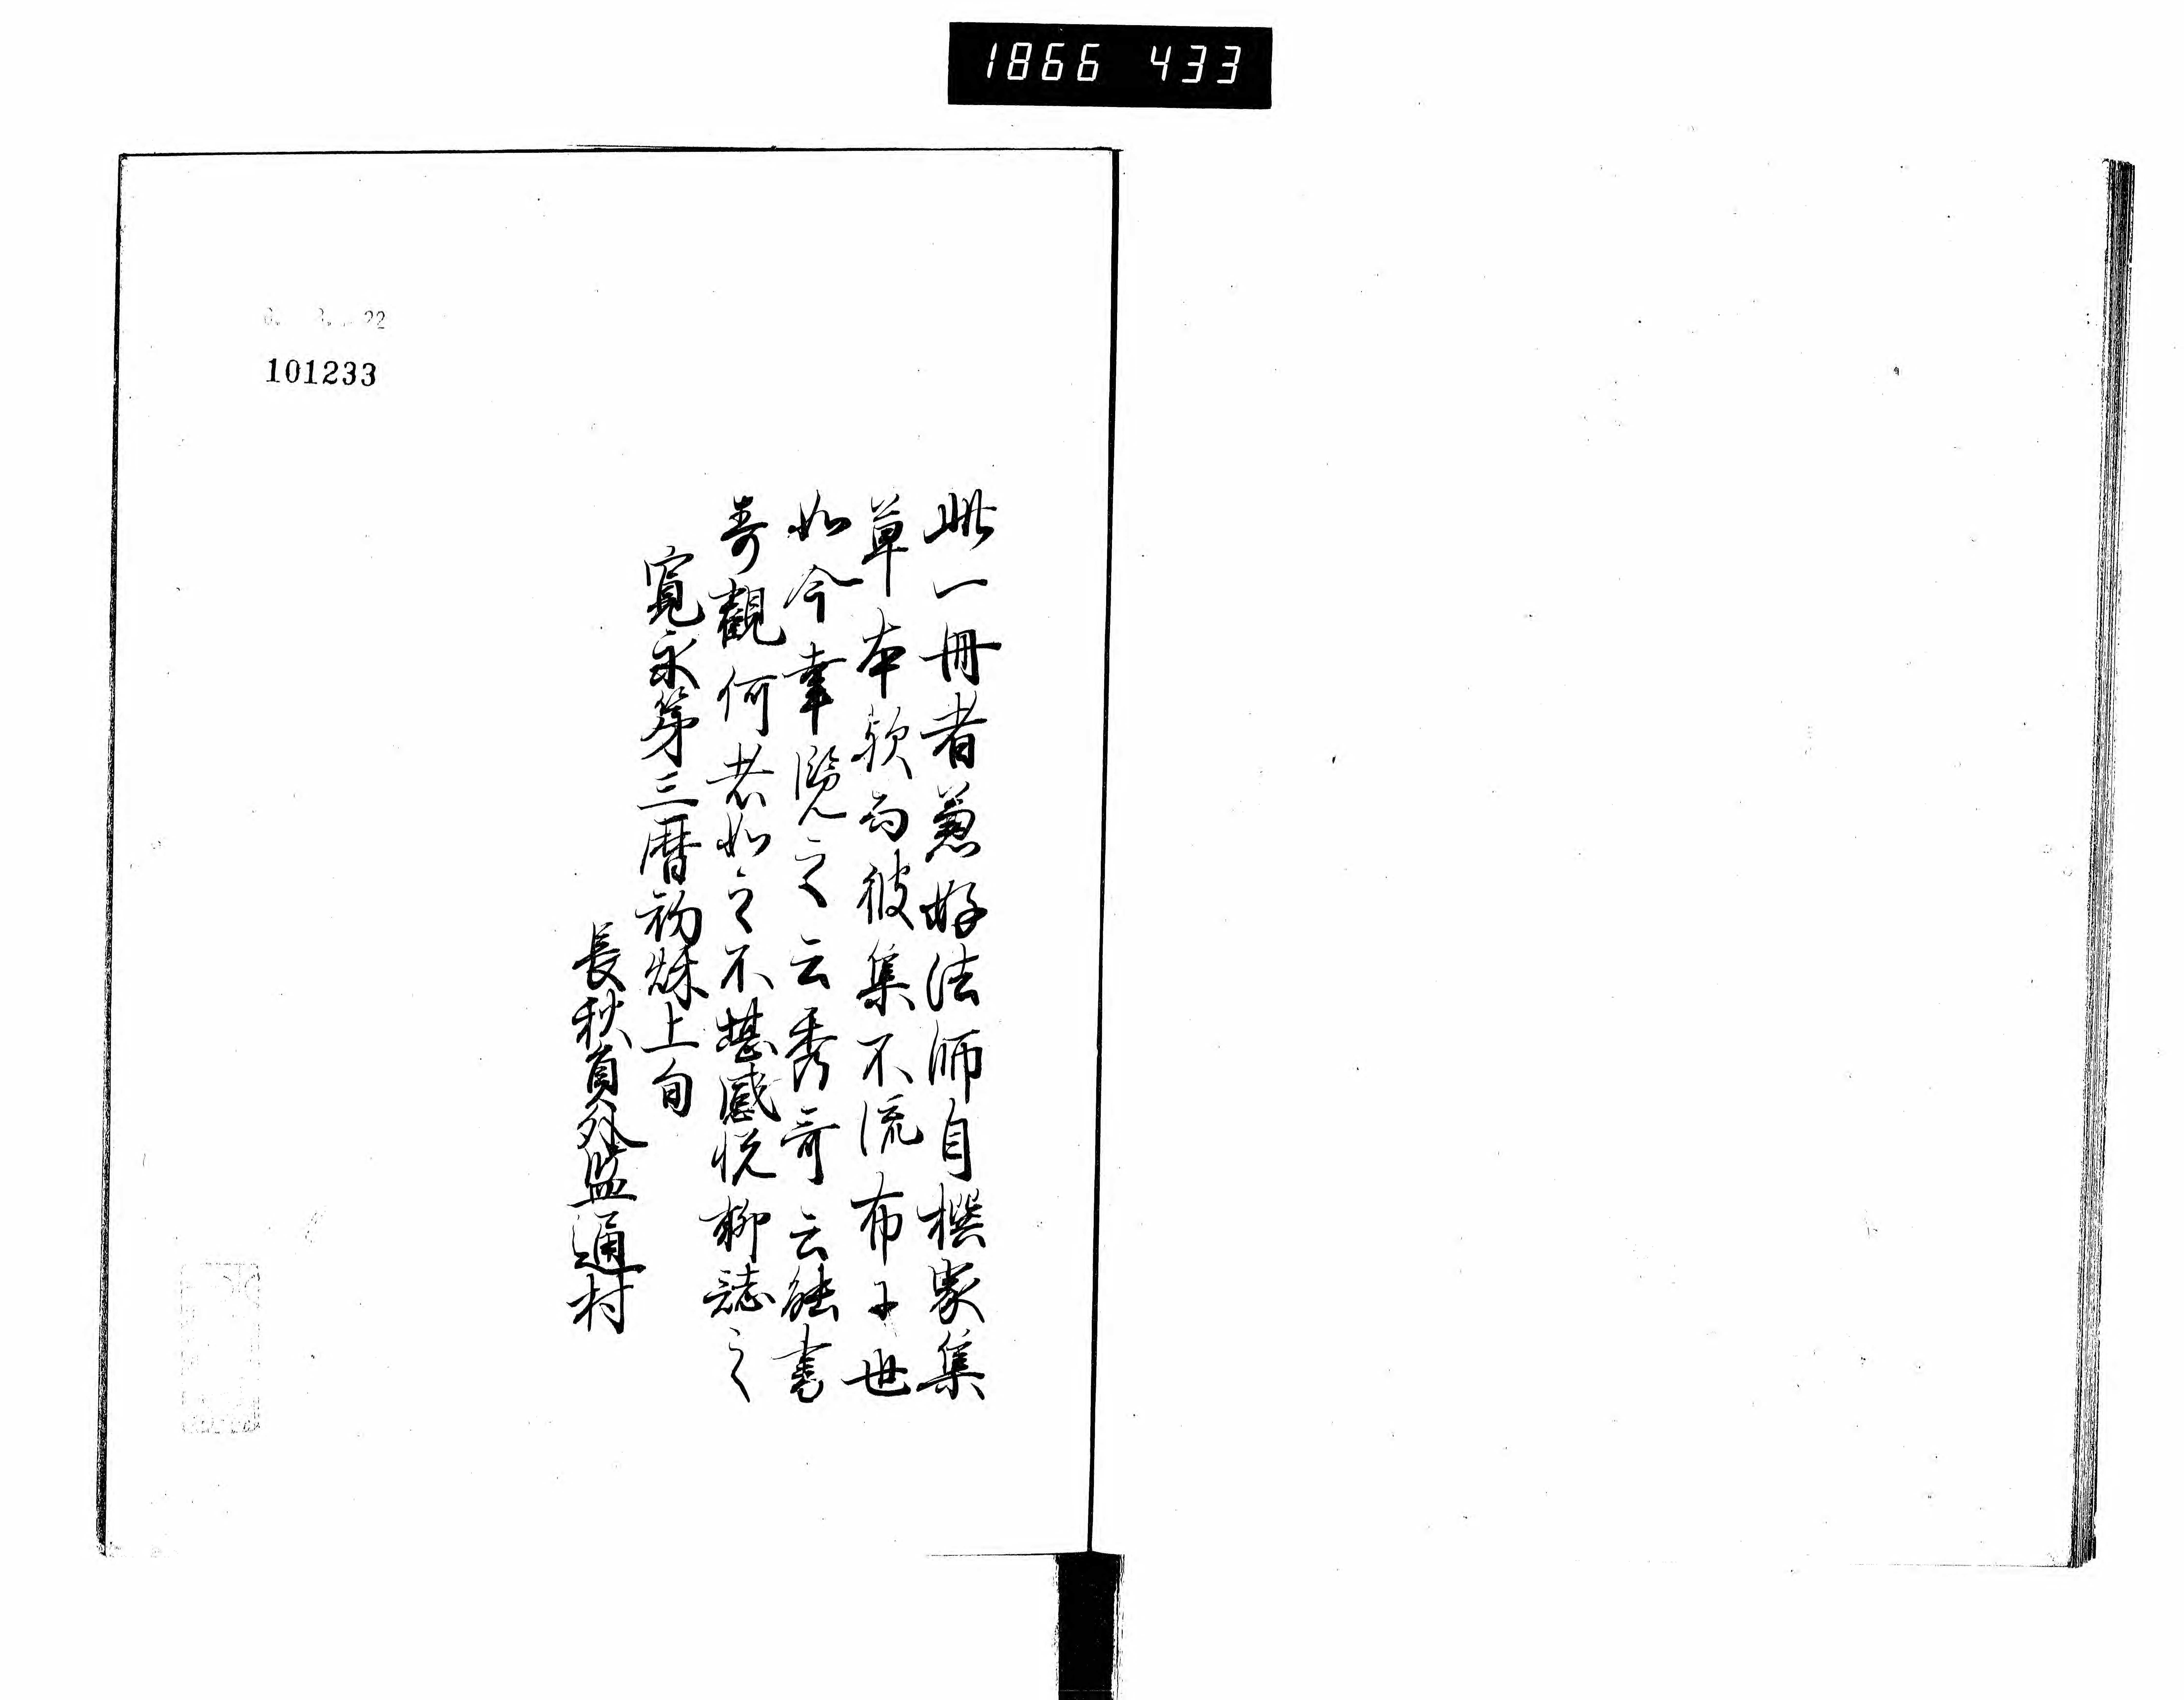 1866 433
此一冊者兼好法師自撰家集
草本歟而彼集不流布于世
如今幸覧之云秀哥云能書
奇觀何者如之不堪感悦聊誌之
寛永第三暦初秌上旬
長秋員外監通村
22
101233